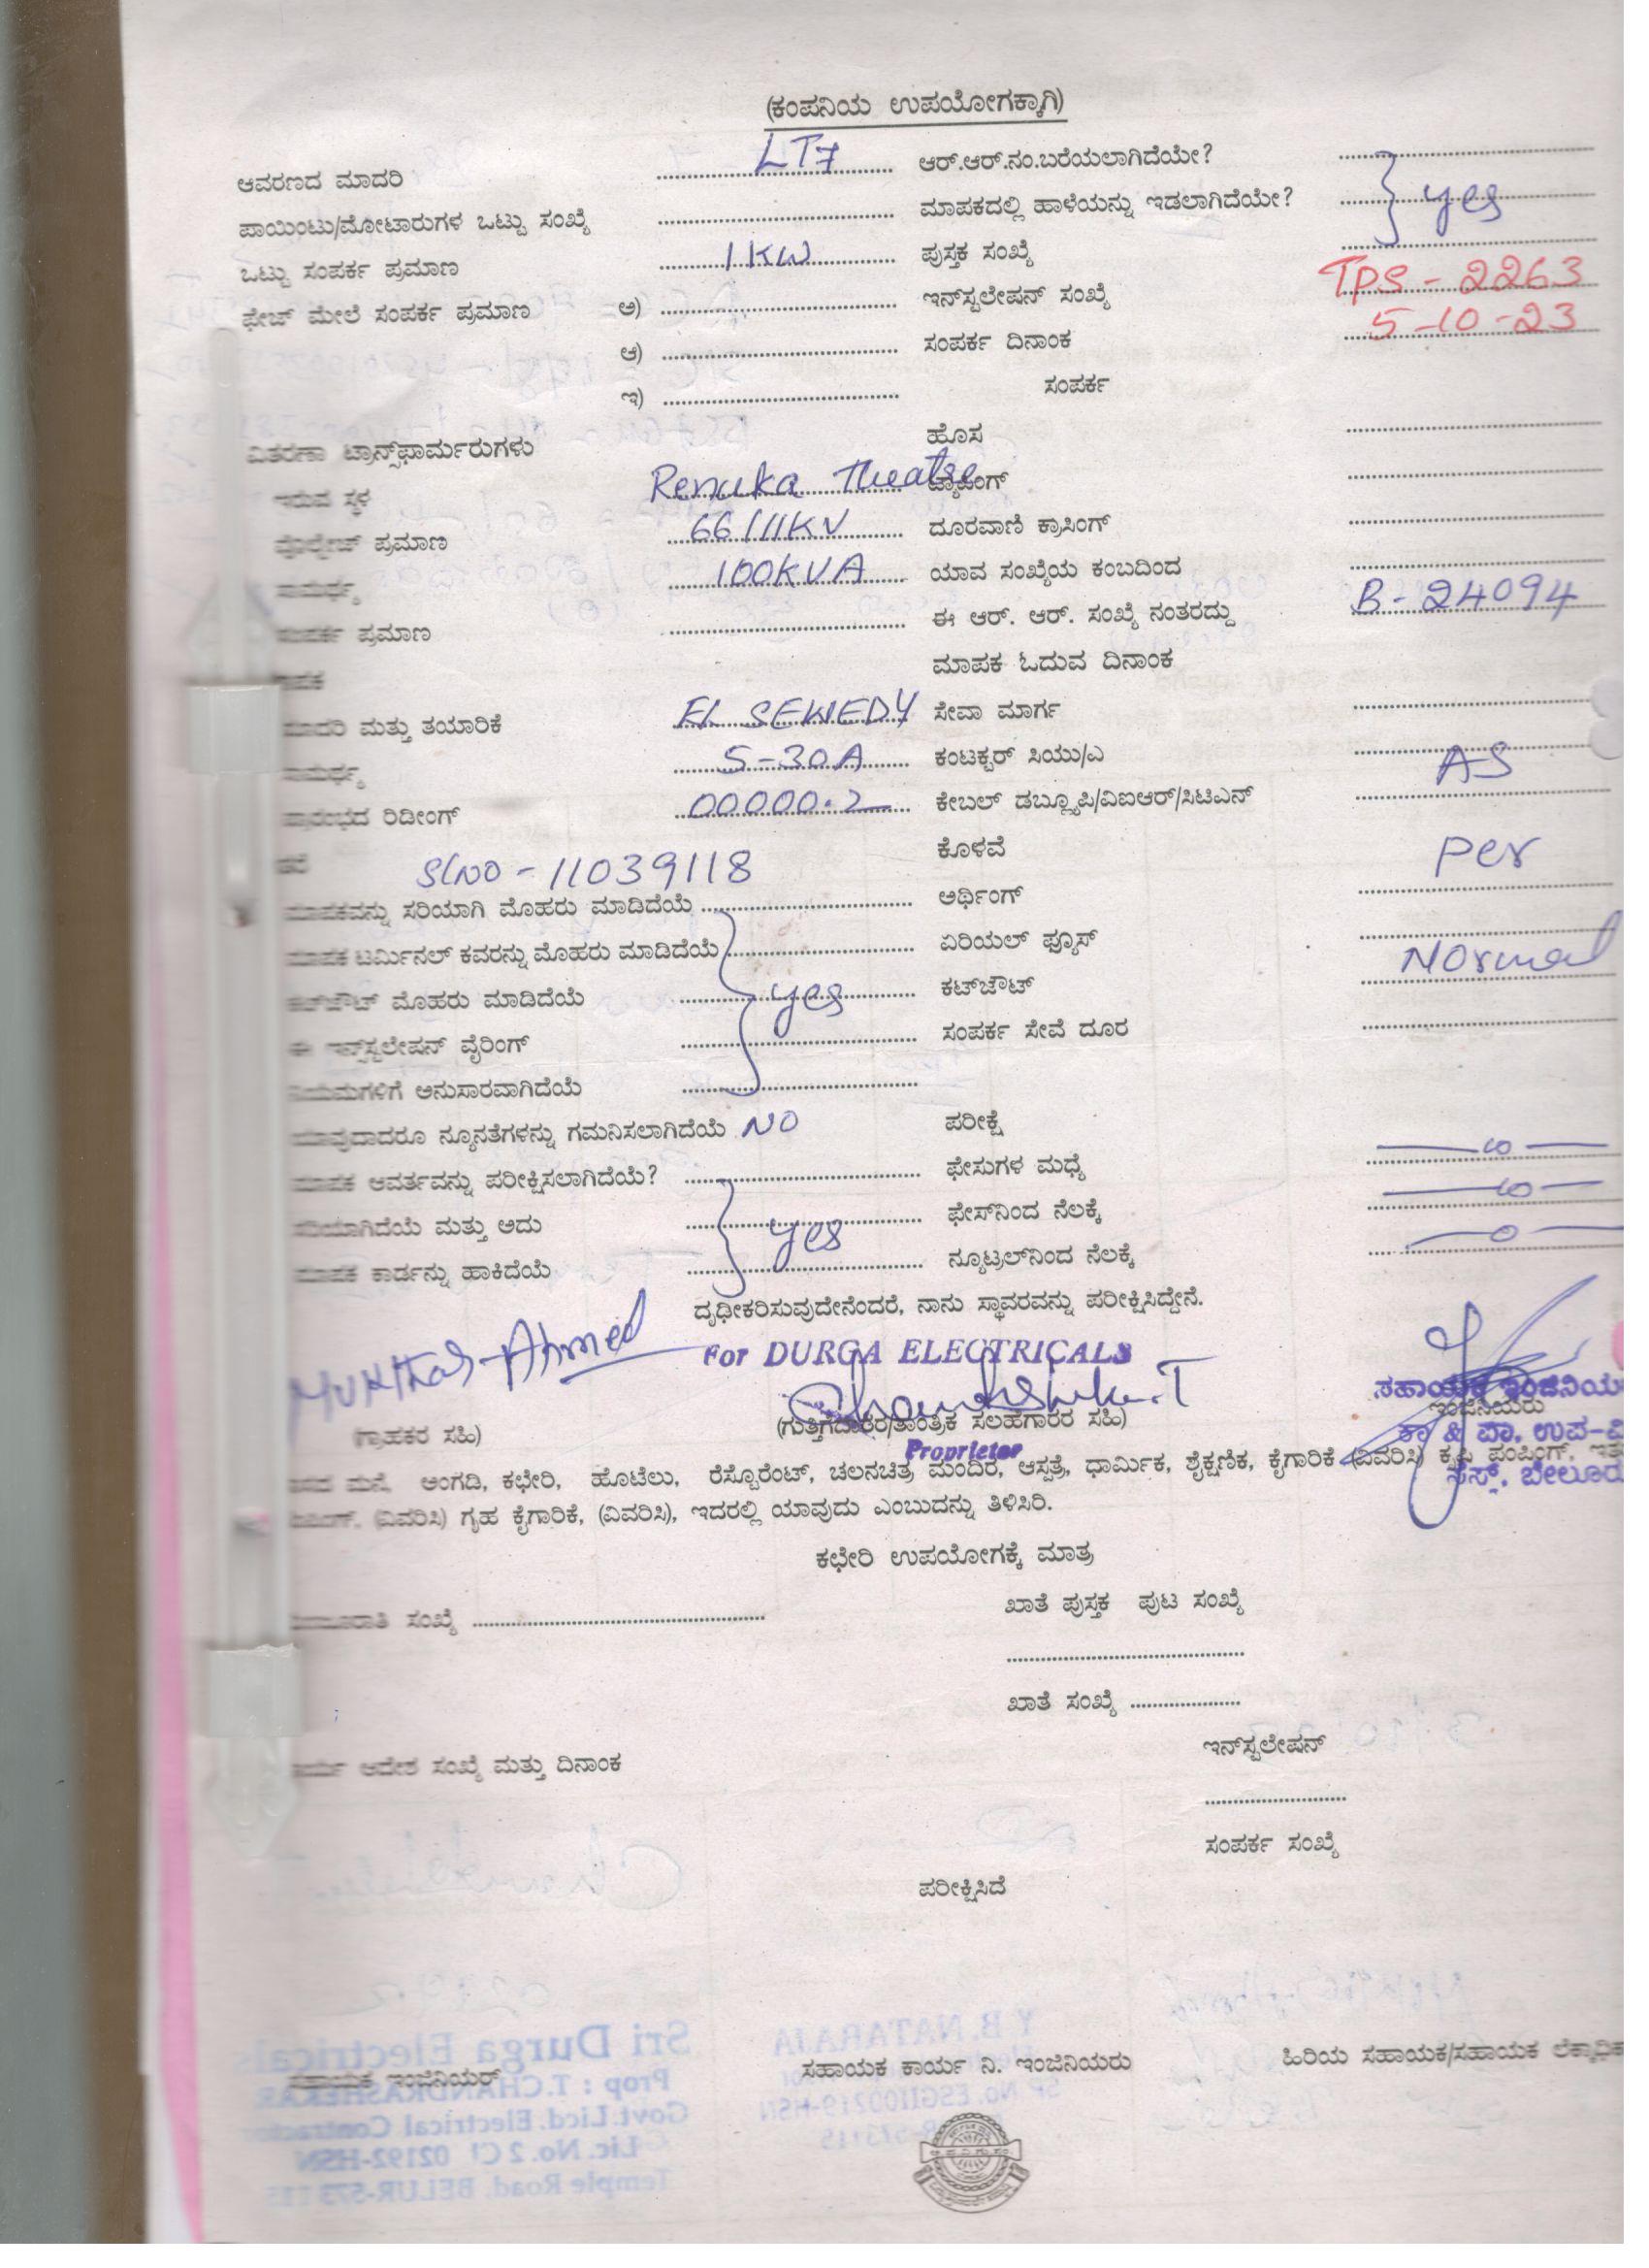 (ಕಂಪನಿಯ ಉಪಯೋಗಕ್ಕಾಗಿ)
ಆವರಣದ ಮಾದರಿ LT7 ಆರ್.ಆರ್.ನಂ.ಬರೆಯಲಾಗಿದೆಯೇ?
ಪಾಯಿಂಟು/ಮೋಟಾರುಗಳ ಒಟ್ಟು ಸಂಖ್ಯೆ ಮಾಪಕದಲ್ಲಿ ಹಾಳೆಯನ್ನು ಇಡಲಾಗಿದೆಯೇ? yes
ಒಟ್ಟು ಸಂಪರ್ಕ ಪ್ರಮಾಣ 1KW ಪುಸ್ತಕ ಸಂಖ್ಯೆ
ಫೇಜ್ ಮೇಲೆ ಸಂಪರ್ಕ ಪ್ರಮಾಣ ಅ) ಇನ್‌ಸ್ಟಲೇಷನ್ ಸಂಖ್ಯೆ TPS - 2263
ಆ) ಸಂಪರ್ಕ ದಿನಾಂಕ 5-10-23
ಇ) ಸಂಪರ್ಕ
ವಿತರಣಾ ಟ್ರಾನ್ಸ್‌ಫಾರ್ಮರುಗಳು ಹೊಸ
ಇರುವ ಸ್ಥಳ Renuka Theatre ಟ್ಯಾಪಿಂಗ್
ವೋಲ್ಟೇಜ್ ಪ್ರಮಾಣ 66/11KV ದೂರವಾಣಿ ಕ್ರಾಸಿಂಗ್
ಸಾಮರ್ಥ್ಯ 100KVA ಯಾವ ಸಂಖ್ಯೆಯ ಕಂಬದಿಂದ
ಸಂಪರ್ಕ ಪ್ರಮಾಣ ಈ ಆರ್. ಆರ್. ಸಂಖ್ಯೆ ನಂತರದ್ದು B - 24094
ಮಾಪಕ ಓದುವ ದಿನಾಂಕ
ಮಾದರಿ ಮತ್ತು ತಯಾರಿಕೆ EL SEWEDY ಸೇವಾ ಮಾರ್ಗ
ಸಾಮರ್ಥ್ಯ 5-30A ಕಂಟಕ್ಟರ್ ಸಿಯು/ಎ AS
ಪ್ರಾರಂಭದ ರಿಡೀಂಗ್ 00000.2 ಕೇಬಲ್ ಡಬ್ಲ್ಯೂಪಿ/ವಿಐಆರ್/ಸಿಟಿಎನ್
Sl.NO - 11039118 ಕೊಳವೆ Per
ಮಾಪಕವನ್ನು ಸರಿಯಾಗಿ ಮೊಹರು ಮಾಡಿದೆಯೆ ಅರ್ಥಿಂಗ್
ಮಾಪಕ ಟರ್ಮಿನಲ್ ಕವರನ್ನು ಮೊಹರು ಮಾಡಿದೆಯೆ ಏರಿಯಲ್ ಫ್ಯೂಸ್ Normal
ಕಟ್‌ಔಟ್ ಮೊಹರು ಮಾಡಿದೆಯೆ yes ಕಟ್‌ಔಟ್
ಈ ಇನ್‌ಸ್ಟಲೇಷನ್ ವೈರಿಂಗ್ ಸಂಪರ್ಕ ಸೇವೆ ದೂರ
ನಿಯಮಗಳಿಗೆ ಅನುಸಾರವಾಗಿದೆಯೆ
ಯಾವುದಾದರೂ ನ್ಯೂನತೆಗಳನ್ನು ಗಮನಿಸಲಾಗಿದೆಯೆ NO ಪರೀಕ್ಷೆ
ಮಾಪಕ ಆವರ್ತವನ್ನು ಪರೀಕ್ಷಿಸಲಾಗಿದೆಯೆ? ಫೇಸುಗಳ ಮಧ್ಯೆ ∞
ಸರಿಯಾಗಿದೆಯೆ ಮತ್ತು ಅದು yes ಫೇಸ್‌ನಿಂದ ನೆಲಕ್ಕೆ ∞
ಮಾಪಕ ಕಾರ್ಡನ್ನು ಹಾಕಿದೆಯೆ ನ್ಯೂಟ್ರಲ್‌ನಿಂದ ನೆಲಕ್ಕೆ 0
ದೃಢೀಕರಿಸುವುದೇನೆಂದರೆ, ನಾನು ಸ್ಥಾವರವನ್ನು ಪರೀಕ್ಷಿಸಿದ್ದೇನೆ.
Mukhtar Ahmed For DURGA ELECTRICALS
Chandrashekar.T ಸಹಾಯಕ ಇಂಜಿನಿಯ
(ಗ್ರಾಹಕರ ಸಹಿ) (ಗುತ್ತಿಗೆದಾರರ/ತಾಂತ್ರಿಕ ಸಲಹೆಗಾರರ ಸಹಿ) ಇಂಜಿನಿಯರು
Proprietor ಕಾ & ಪಾ. ಉಪ-ವಿ
ಮನೆ, ಅಂಗಡಿ, ಕಛೇರಿ, ಹೊಟೆಲು, ರೆಸ್ಟೊರೆಂಟ್, ಚಲನಚಿತ್ರ ಮಂದಿರ, ಆಸ್ಪತ್ರೆ, ಧಾರ್ಮಿಕ, ಶೈಕ್ಷಣಿಕ, ಕೈಗಾರಿಕೆ (ವಿವರಿಸಿ) ಕೃಷಿ ಪಂಪಿಂಗ್, ಇತ
ಬೇಲೂರು
(ವಿವರಿಸಿ) ಗೃಹ ಕೈಗಾರಿಕೆ, (ವಿವರಿಸಿ), ಇದರಲ್ಲಿ ಯಾವುದು ಎಂಬುದನ್ನು ತಿಳಿಸಿರಿ.
ಕಛೇರಿ ಉಪಯೋಗಕ್ಕೆ ಮಾತ್ರ
ಸಂಖ್ಯೆ ಖಾತೆ ಪುಸ್ತಕ ಪುಟ ಸಂಖ್ಯೆ
ಖಾತೆ ಸಂಖ್ಯೆ
ಇನ್‌ಸ್ಟಲೇಷನ್
ಆದೇಶ ಸಂಖ್ಯೆ ಮತ್ತು ದಿನಾಂಕ
ಸಂಪರ್ಕ ಸಂಖ್ಯೆ
ಪರೀಕ್ಷಿಸಿದೆ
ಸಹಾಯಕ ಇಂಜಿನಿಯರ್ ಸಹಾಯಕ ಕಾರ್ಯ ನಿ. ಇಂಜಿನಿಯರು ಹಿರಿಯ ಸಹಾಯಕ/ಸಹಾಯಕ ಲೆಕ್ಕಾಧಿಕ
Sri Durga Electricals Y.B.NATARAJA
Prop : T.CHANDRASHEKAR
Govt.Licd.Electrical Contractor
Lic. No. 2 Cl 02192-HSN
Temple Road. BELUR-573 115